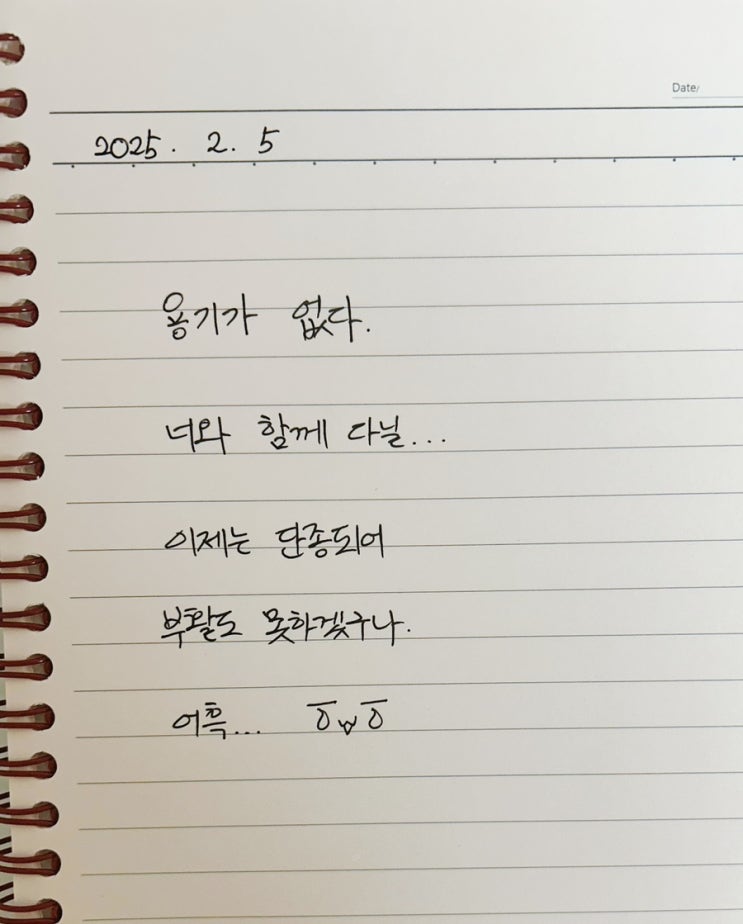 Date/
2025. 2. 5
용기가 없다.
너와 함께 다닐...
이제는 단종되어
부활도 못하겠구나.
어흑... ㅠㅠ